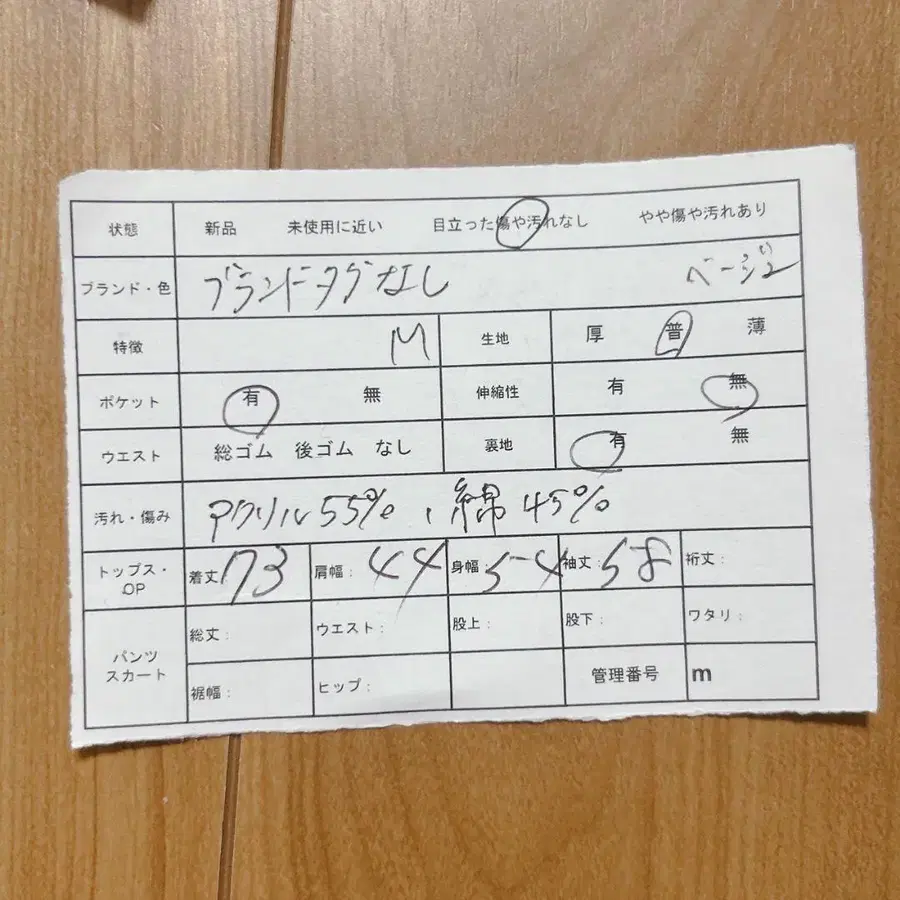 状態 新品 未使用に近い 目立った傷や汚れなし やや傷や汚れあり
ブランド・色 ブランドタグなし ベージュ
特徴 M 生地 厚 普 薄
ポケット 有 無 伸縮性 有 無
ウエスト 総ゴム 後ゴム なし 裏地 有 無
汚れ・傷み アクリル55%、綿45%
トップス・OP 着丈 73 肩幅: 44 身幅: 54 袖丈: 58 裄丈:
パンツ スカート 総丈: ウエスト: 股上: 股下: ワタリ:
裾幅: ヒップ: 管理番号 m